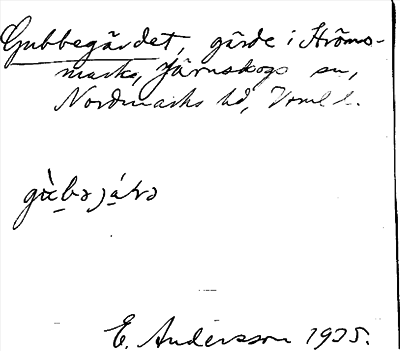 Gubbegärdet, gärde i Ströms-
mark, Järnskogs sn,
Nordmarks hd, Vrml l.
E. Andersson 1935.